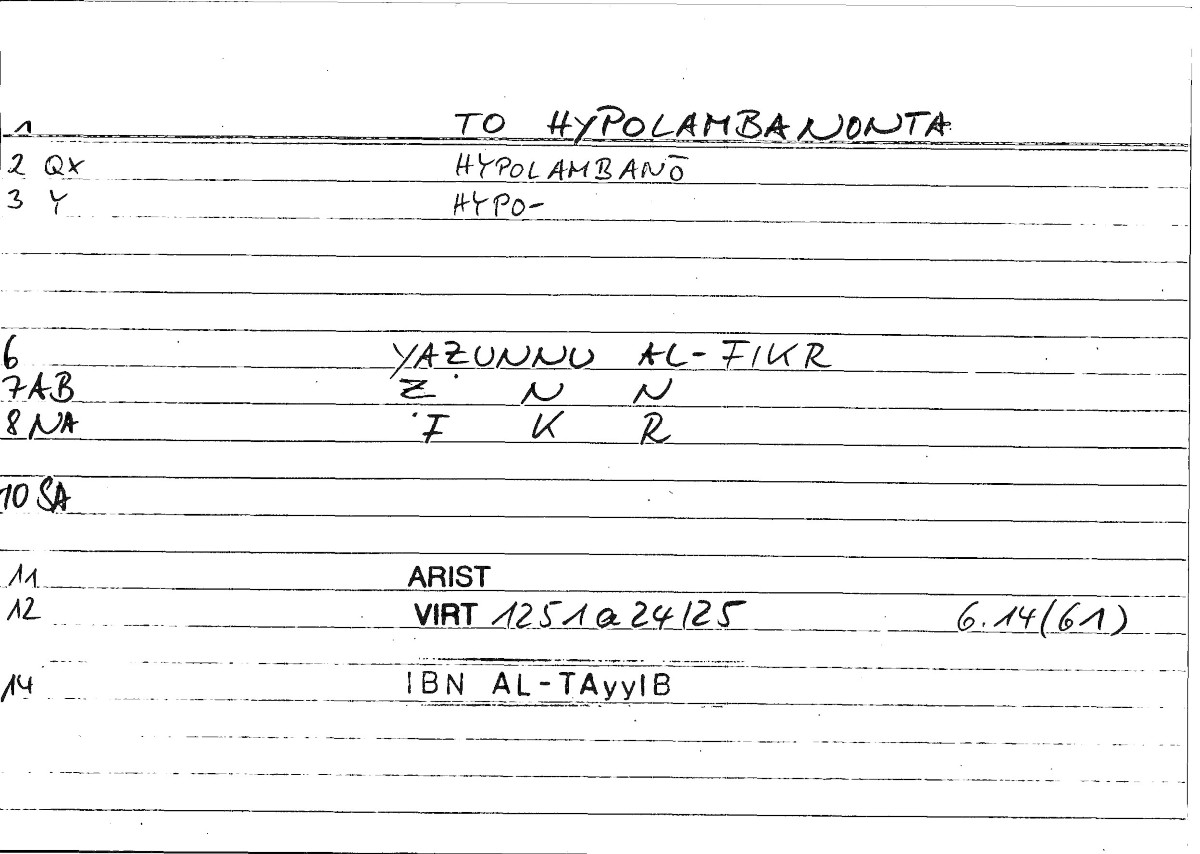 1 TO HYPOLAMBANONTA
2 QX HYPOLAMBANŌ
3 Y HYPO-
6 YAẒUNNU AL-FIKR
7 AB Ẓ N N
8 NA F K R
10 SA
11 ARIST
12 VIRT 1251a24/25 6.14(61)
14 IBN AL-TAyyIB